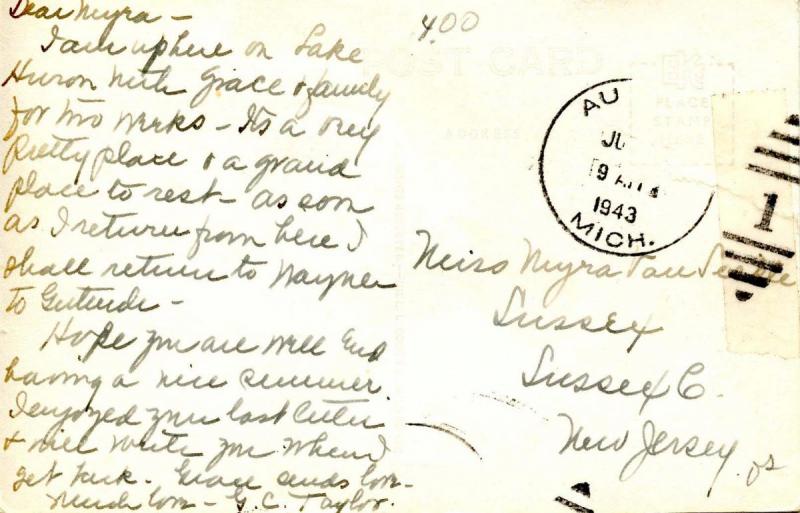 Dear Myra -
I am up here on Lake
Huron with Grace & family
for two weeks - It's a very
pretty place & a grand
place to rest - as soon
as I return from here I
shall return to Wayne
to Gertrude -
Hope you are well and
having a nice summer.
I enjoyed your last letter
& will write you when I
get back. Grace sends love -
Much love - G. C. Taylor.
4.00
POST CARD
ADDRESS
PLACE
STAMP
HERE
AU
JU
9 AM
1943
MICH.
1
Miss Myra Van
Sussex
Sussex C.
New Jersey